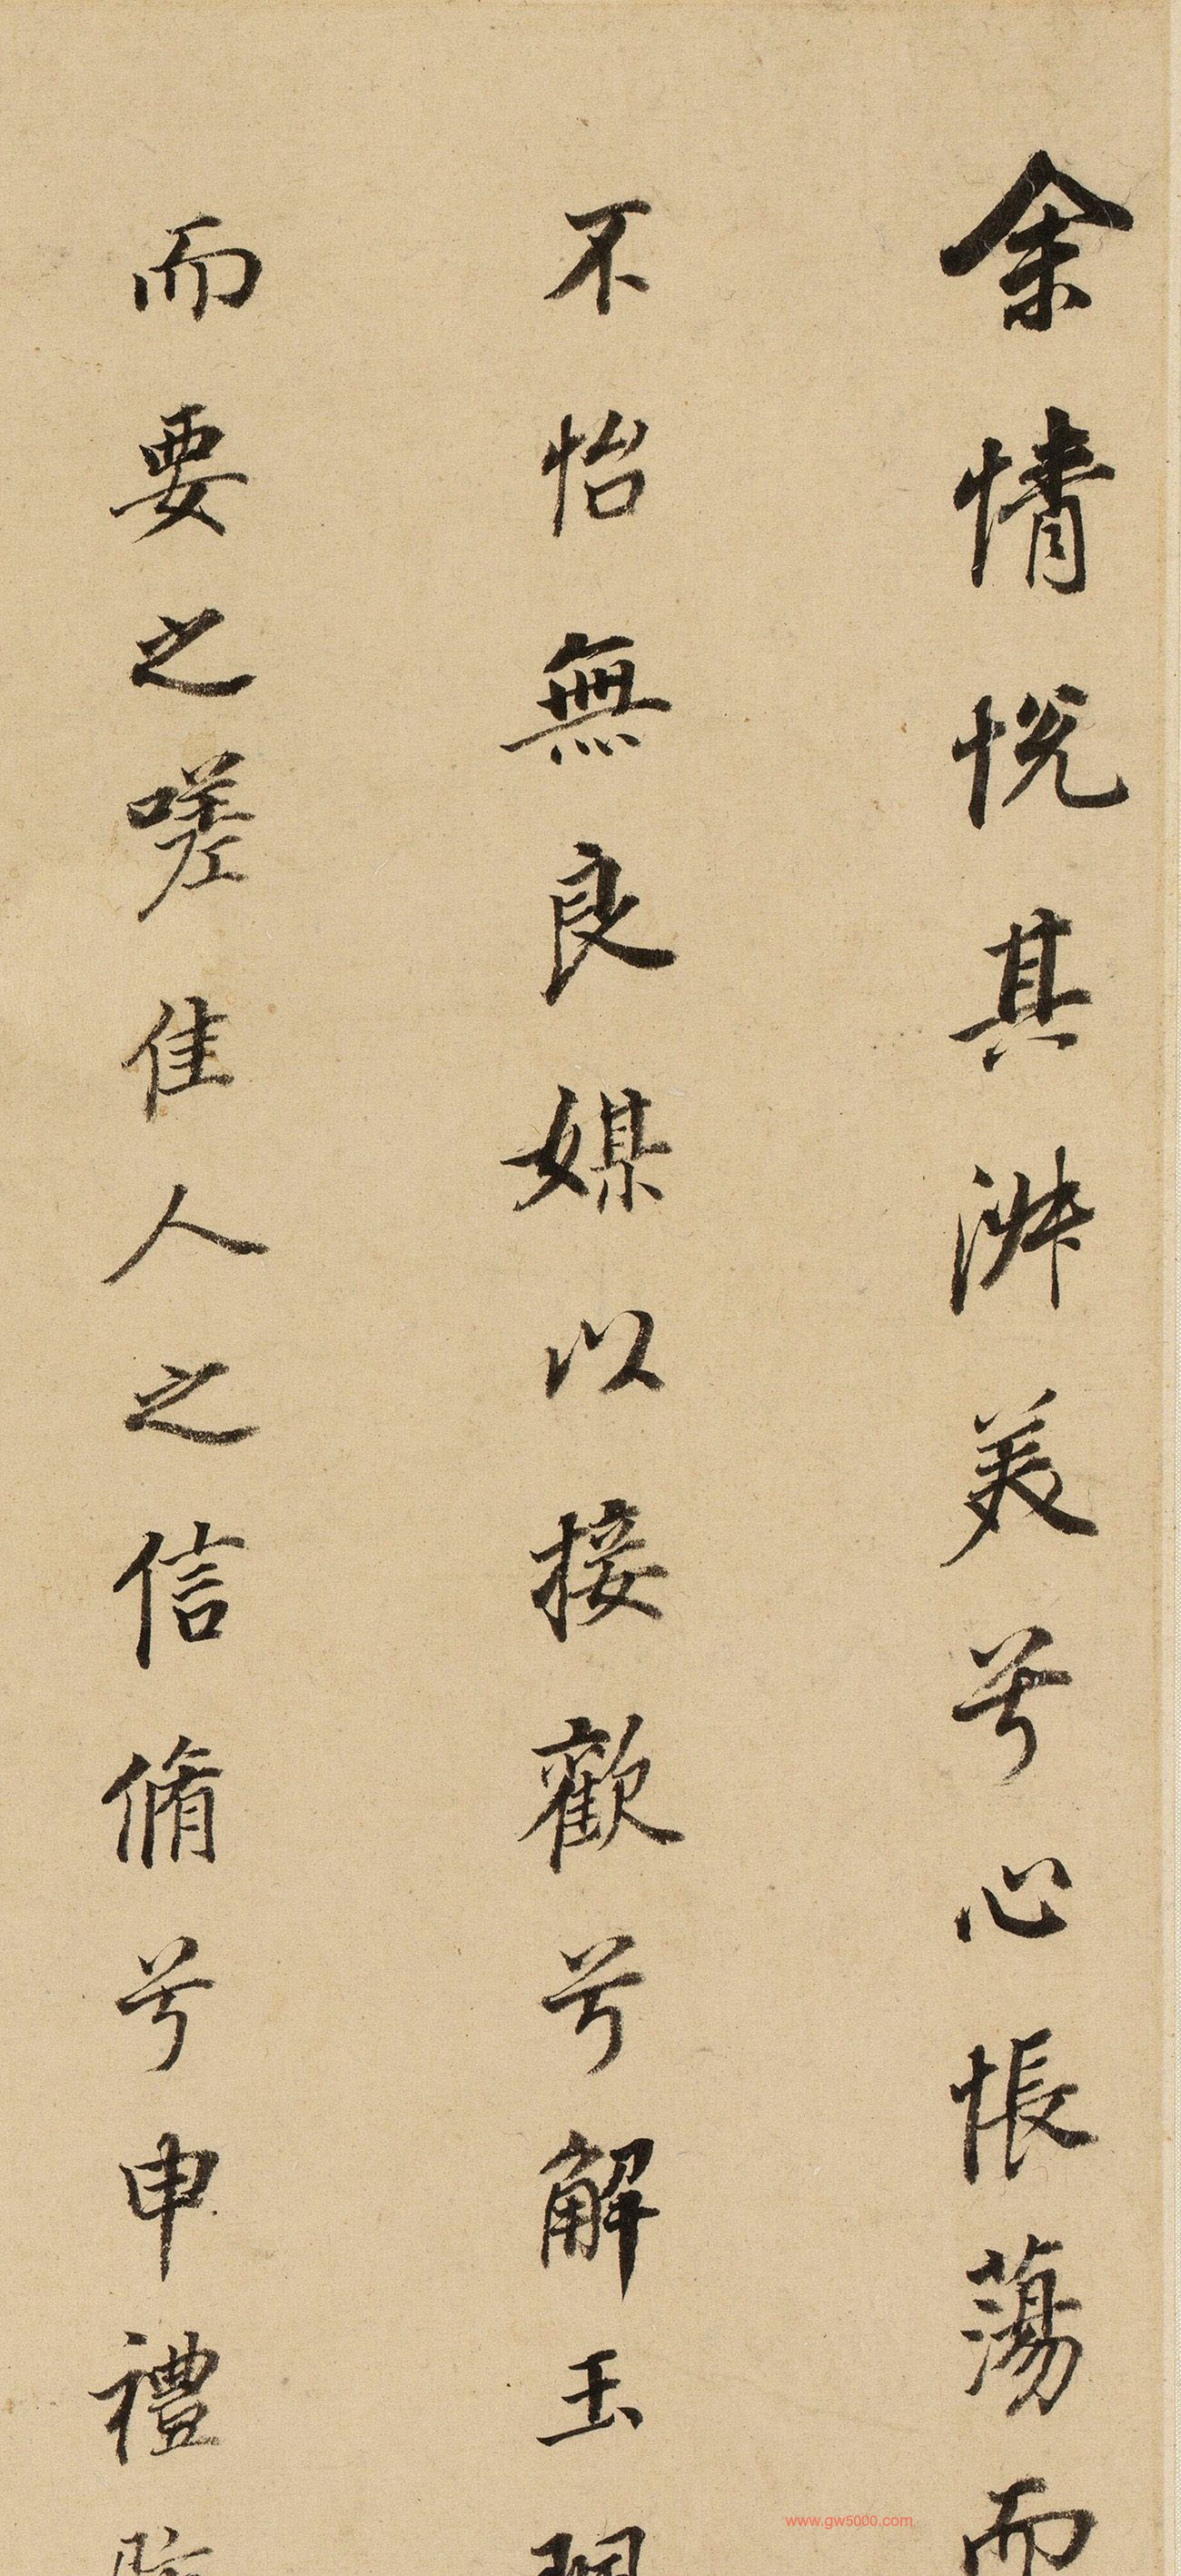 余情悅其淑美兮心悵蕩而
不怡無良媒以接歡兮解玉
而要之嗟佳人之信脩兮申禮
www.gw5000.com